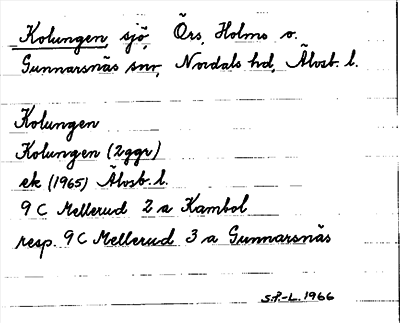 Kolungen, sjö, Örs, Holms o.
Gunnarsnäs snr, Nordals hd, Älvsb. l.
Kolungen
Kolungen (2ggr)
ek (1965) Älvsb. l.
9 C Mellerud 2 a Kambol
resp. 9 C Mellerud 3 a Gunnarsnäs
S.F.-L. 1966